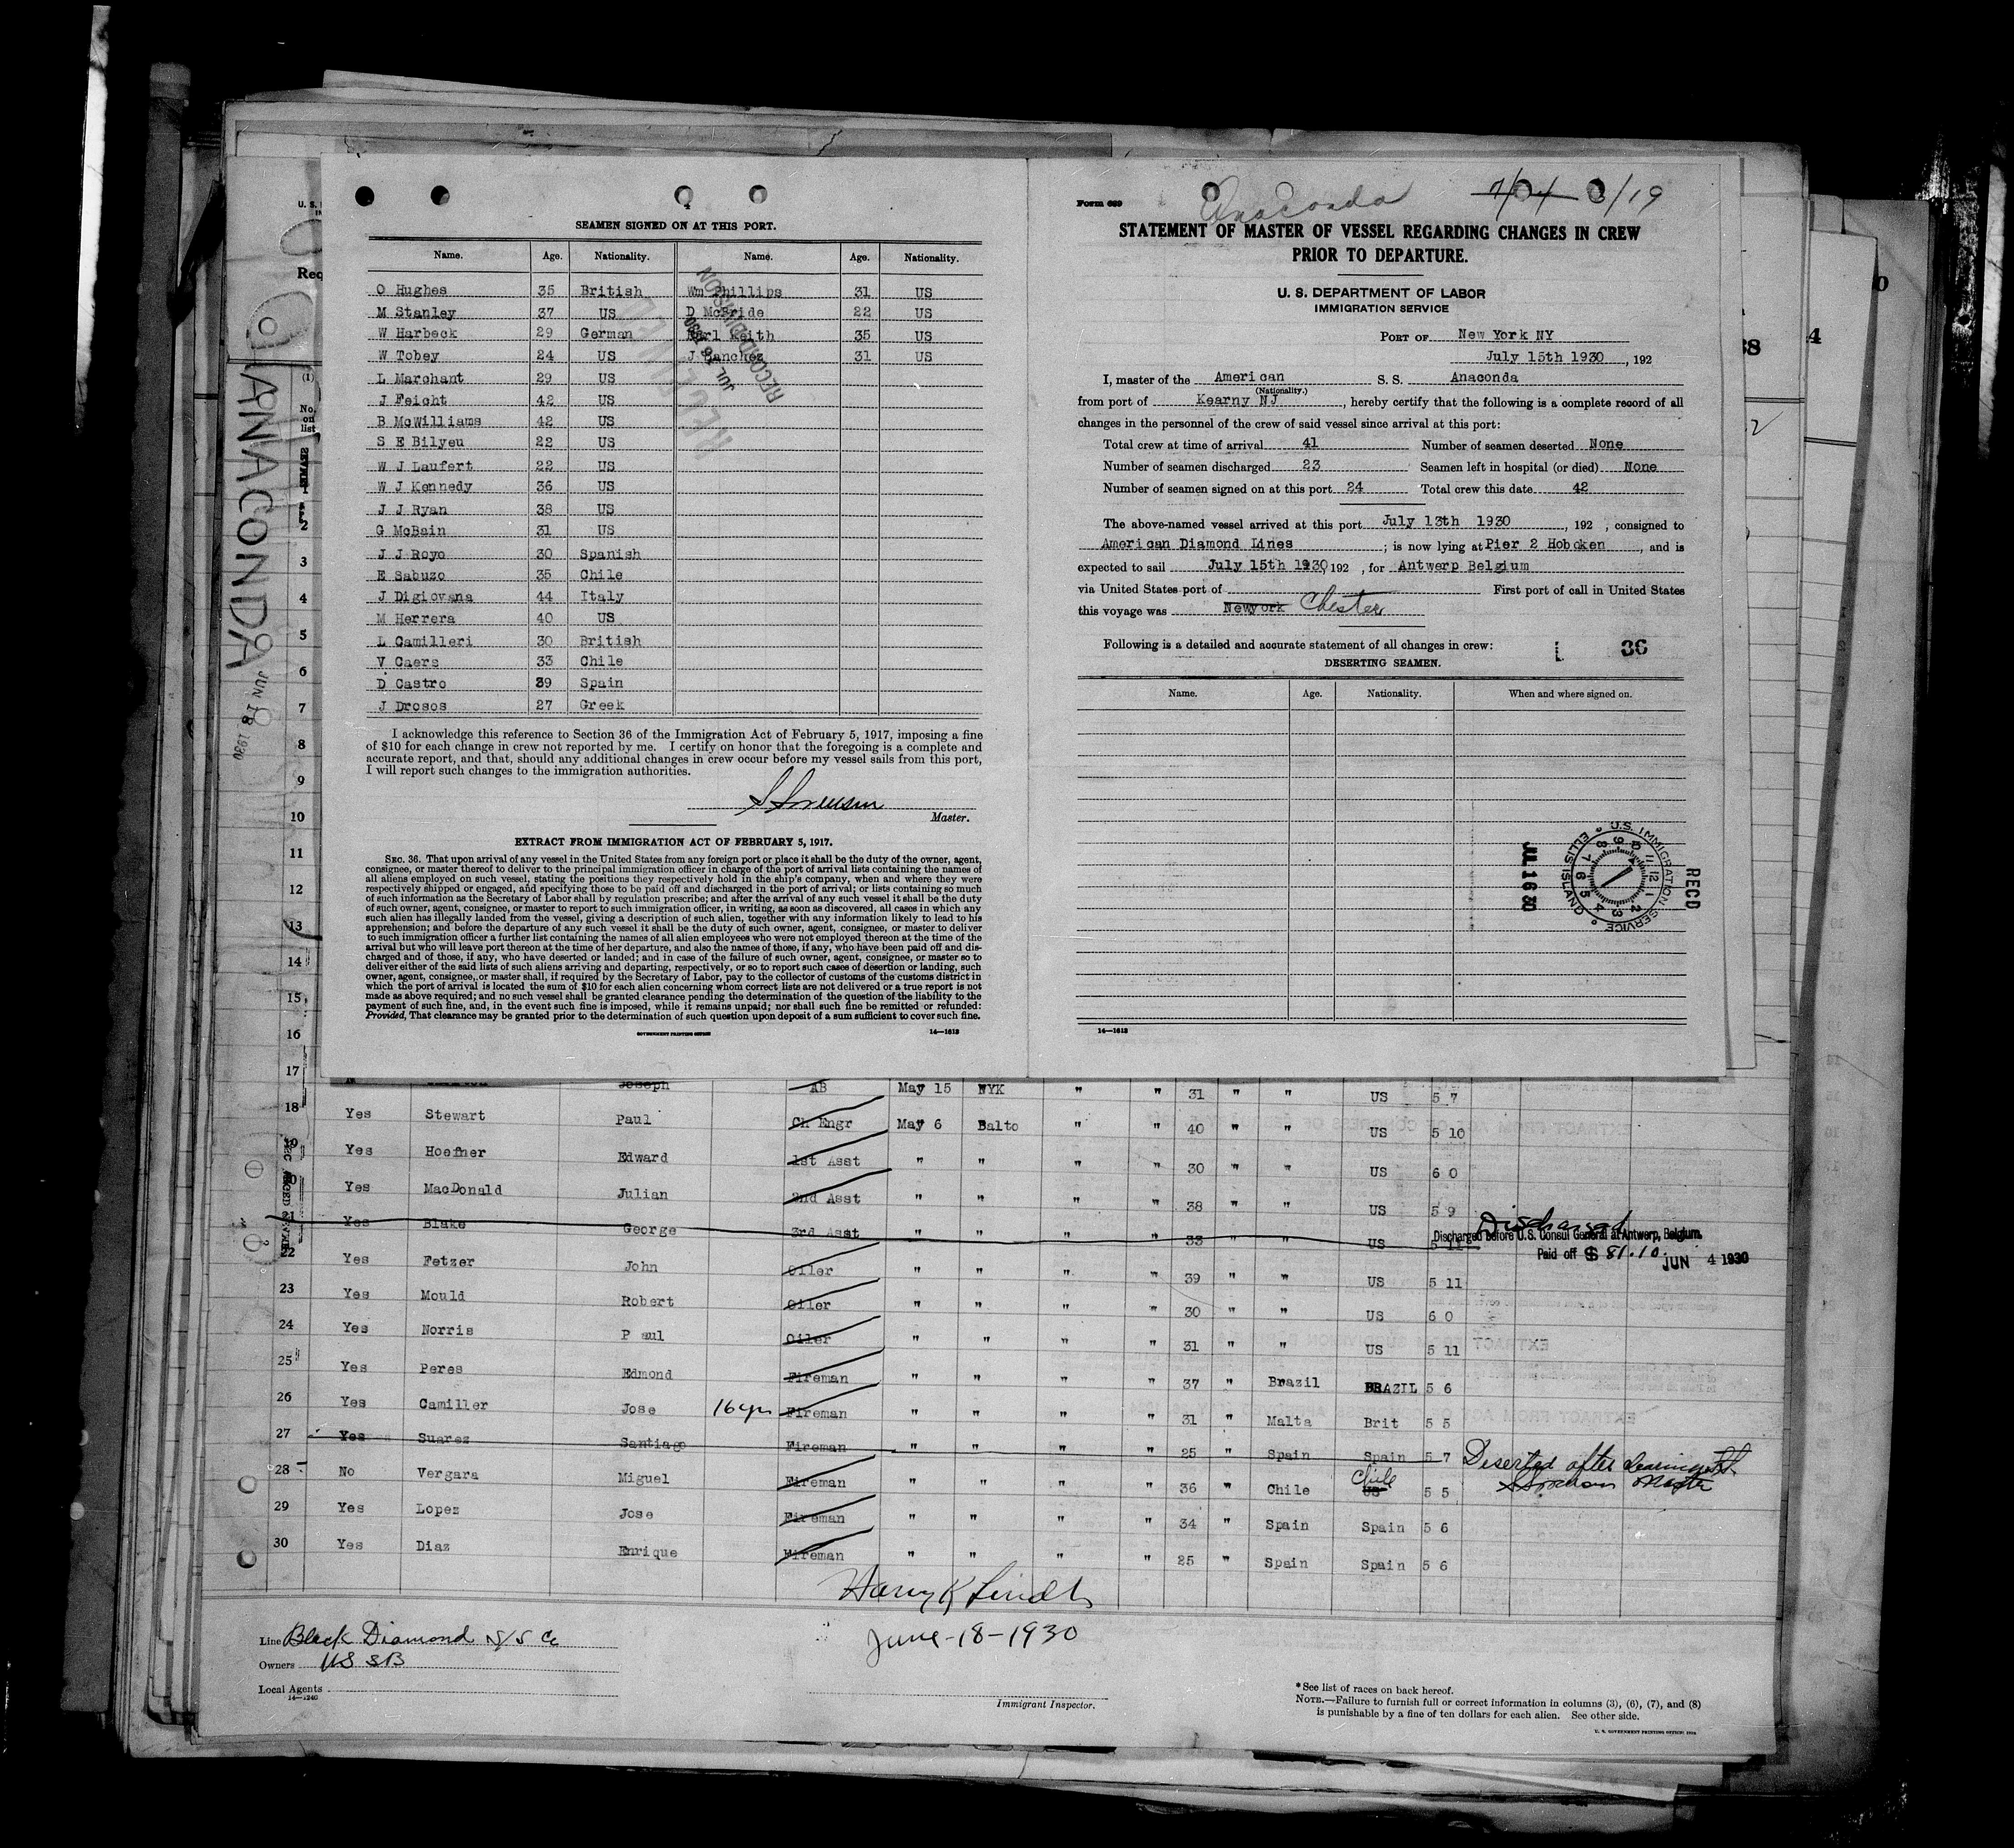 SEAMEN SIGNED ON AT THIS PORT.
Name. Age. Nationality. Name. Age. Nationality.
O Hughes 35 British Wm Phillips 31 US
M Stanley 37 US D McBride 22 US
W Harbeck 29 German Earl Keith 35 US
W Tobey 24 US J Sanchez 31 US
L Marchant 29 US
J Feicht 42 US
B McWilliams 42 US
S E Bilyeu 22 US
W J Laufert 22 US
W J Kennedy 36 US
J J Ryan 38 US
G McBain 31 US
J J Royo 30 Spanish
E Sabuzo 35 Chile
J Digiovana 44 Italy
M Herrera 40 US
L Camilleri 30 British
V Caers 33 Chile
D Castro 39 Spain
J Drosos 27 Greek
I acknowledge this reference to Section 36 of the Immigration Act of February 5, 1917, imposing a fine
of $10 for each change in crew not reported by me. I certify on honor that the foregoing is a complete and
accurate report, and that, should any additional changes in crew occur before my vessel sails from this port,
I will report such changes to the immigration authorities.
S Sorensen
Master.
EXTRACT FROM IMMIGRATION ACT OF FEBRUARY 5, 1917.
SEC. 36. That upon arrival of any vessel in the United States from any foreign port or place it shall be the duty of the owner, agent,
consignee, or master thereof to deliver to the principal immigration officer in charge of the port of arrival lists containing the names of
all aliens employed on such vessel, stating the positions they respectively hold in the ship's company, when and where they were
respectively shipped or engaged, and specifying those to be paid off and discharged in the port of arrival; or lists containing so much
of such information as the Secretary of Labor shall by regulation prescribe; and after the arrival of any such vessel it shall be the duty
of such owner, agent, consignee, or master to report to such immigration officer, in writing, as soon as discovered, all cases in which any
such alien has illegally landed from the vessel, giving a description of such alien, together with any information likely to lead to his
apprehension; and before the departure of any such vessel it shall be the duty of such owner, agent, consignee, or master to deliver
to such immigration officer a further list containing the names of all alien employees who were not employed thereon at the time of the
arrival but who will leave port thereon at the time of her departure, and also the names of those, if any, who have been paid off and dis-
charged and of those, if any, who have deserted or landed; and in case of the failure of such owner, agent, consignee, or master so to
deliver either of the said lists of such aliens arriving and departing, respectively, or so to report such cases of desertion or landing, such
owner, agent, consignee, or master shall, if required by the Secretary of Labor, pay to the collector of customs of the customs district in
which the port of arrival is located the sum of $10 for each alien concerning whom correct lists are not delivered or a true report is not
made as above required; and no such vessel shall be granted clearance pending the determination of the question of the liability to the
payment of such fine, and, in the event such fine is imposed, while it remains unpaid; nor shall such fine be remitted or refunded:
Provided, That clearance may be granted prior to the determination of such question upon deposit of a sum sufficient to cover such fine.
GOVERNMENT PRINTING OFFICE 14—1613
Form 689 Anaconda 3/19
STATEMENT OF MASTER OF VESSEL REGARDING CHANGES IN CREW
PRIOR TO DEPARTURE.
U. S. DEPARTMENT OF LABOR
IMMIGRATION SERVICE
PORT OF New York NY
July 15th 1930, 192
I, master of the American S. S. Anaconda
(Nationality.)
from port of Kearny NJ, hereby certify that the following is a complete record of all
changes in the personnel of the crew of said vessel since arrival at this port:
Total crew at time of arrival 41 Number of seamen deserted None
Number of seamen discharged 23 Seamen left in hospital (or died) None
Number of seamen signed on at this port 24 Total crew this date 42
The above-named vessel arrived at this port July 13th 1930, 192 , consigned to
American Diamond Lines; is now lying at Pier 2 Hoboken, and is
expected to sail July 15th 1930, 192 , for Antwerp Belgium
via United States port of First port of call in United States
this voyage was Newyork Chester
Following is a detailed and accurate statement of all changes in crew: 36
DESERTING SEAMEN.
Name. Age. Nationality. When and where signed on.
U.S. IMMIGRATION SERVICE ELLIS ISLAND
REC'D
JUL 16 30
14—1613
RECEIVED
RECORD DIVISION
ANACONDA
JUN 18 1930
Joseph AB May 15 NYK " " 31 " " US 5 7
18 Yes Stewart Paul Ch Engr May 6 Balto " " 40 " " US 5 10
19 Yes Hoefner Edward 1st Asst " " " " 30 " " US 6 0
20 Yes MacDonald Julian 2nd Asst " " " " 38 " " US 5 9
21 Yes Blake George 3rd Asst " " " " 33 " " US 5 11 Discharged
Discharged before U.S. Consul General at Antwerp, Belgium.
Paid off $ 81.10 JUN 4 1930
22 Yes Fetzer John Oiler " " " " 39 " " US 5 11
23 Yes Mould Robert Oiler " " " " 30 " " US 6 0
24 Yes Norris P aul Oiler " " " " 31 " " US 5 11
25 Yes Peres Edmond Fireman " " " " 37 " Brazil BRAZIL 5 6
26 Yes Camiller Jose 16 yrs Fireman " " " " 31 " Malta Brit 5 5
27 Yes Suarez Santiago Fireman " " " " 25 " Spain Spain 5 7 Deserted after
28 No Vergara Miguel Fireman " " " " 36 " Chile US Chile 5 5 S Sorensen Master
29 Yes Lopez Jose Fireman " " " " 34 " Spain Spain 5 6
30 Yes Diaz Enrique Fireman " " " " 25 " Spain Spain 5 6
June-18-1930
Line Black Diamond S/S Co
Owners US SB
Local Agents
14—1240
Immigrant Inspector.
*See list of races on back hereof.
NOTE.—Failure to furnish full or correct information in columns (3), (6), (7), and (8)
is punishable by a fine of ten dollars for each alien. See other side.